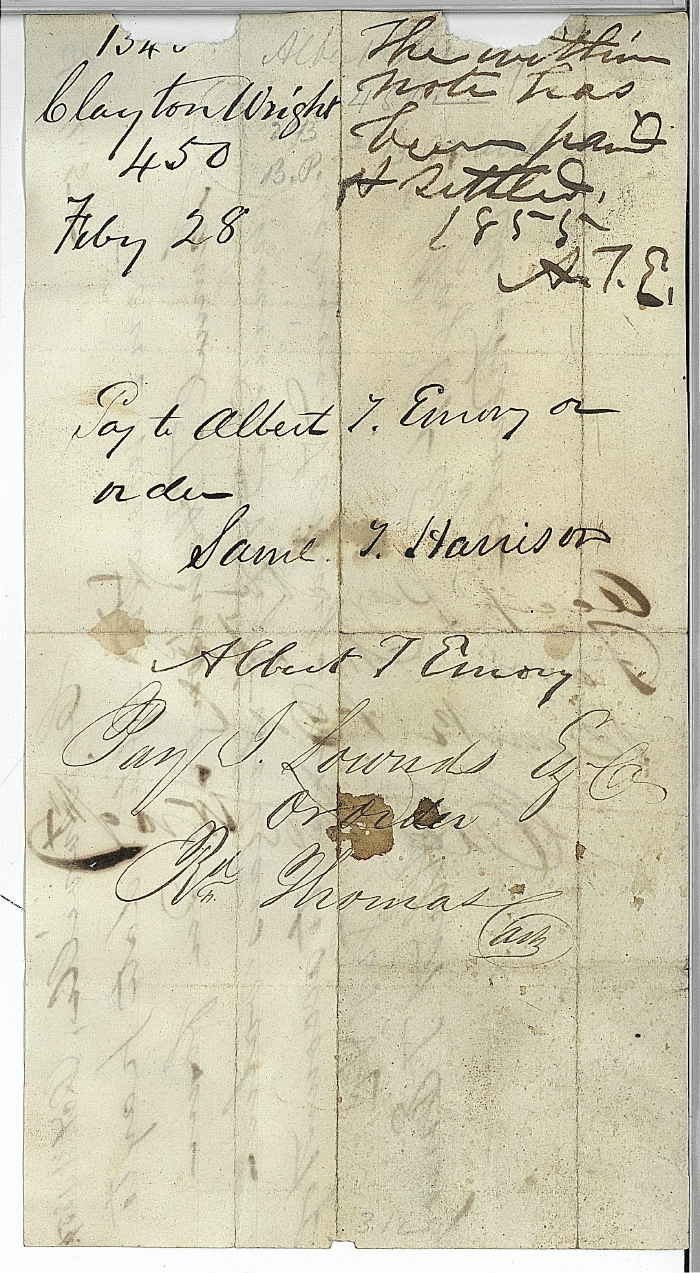 Clayton Wright
450
Feby 28
The within
note has
been paid
& settled.
1855
A.T.E.
Pay to Albert T. Emory or
order
Saml. T. Harrison
Albert T Emory
Pay J. Lownds Esq
or order
Rd Thomas
Cash
B.P.